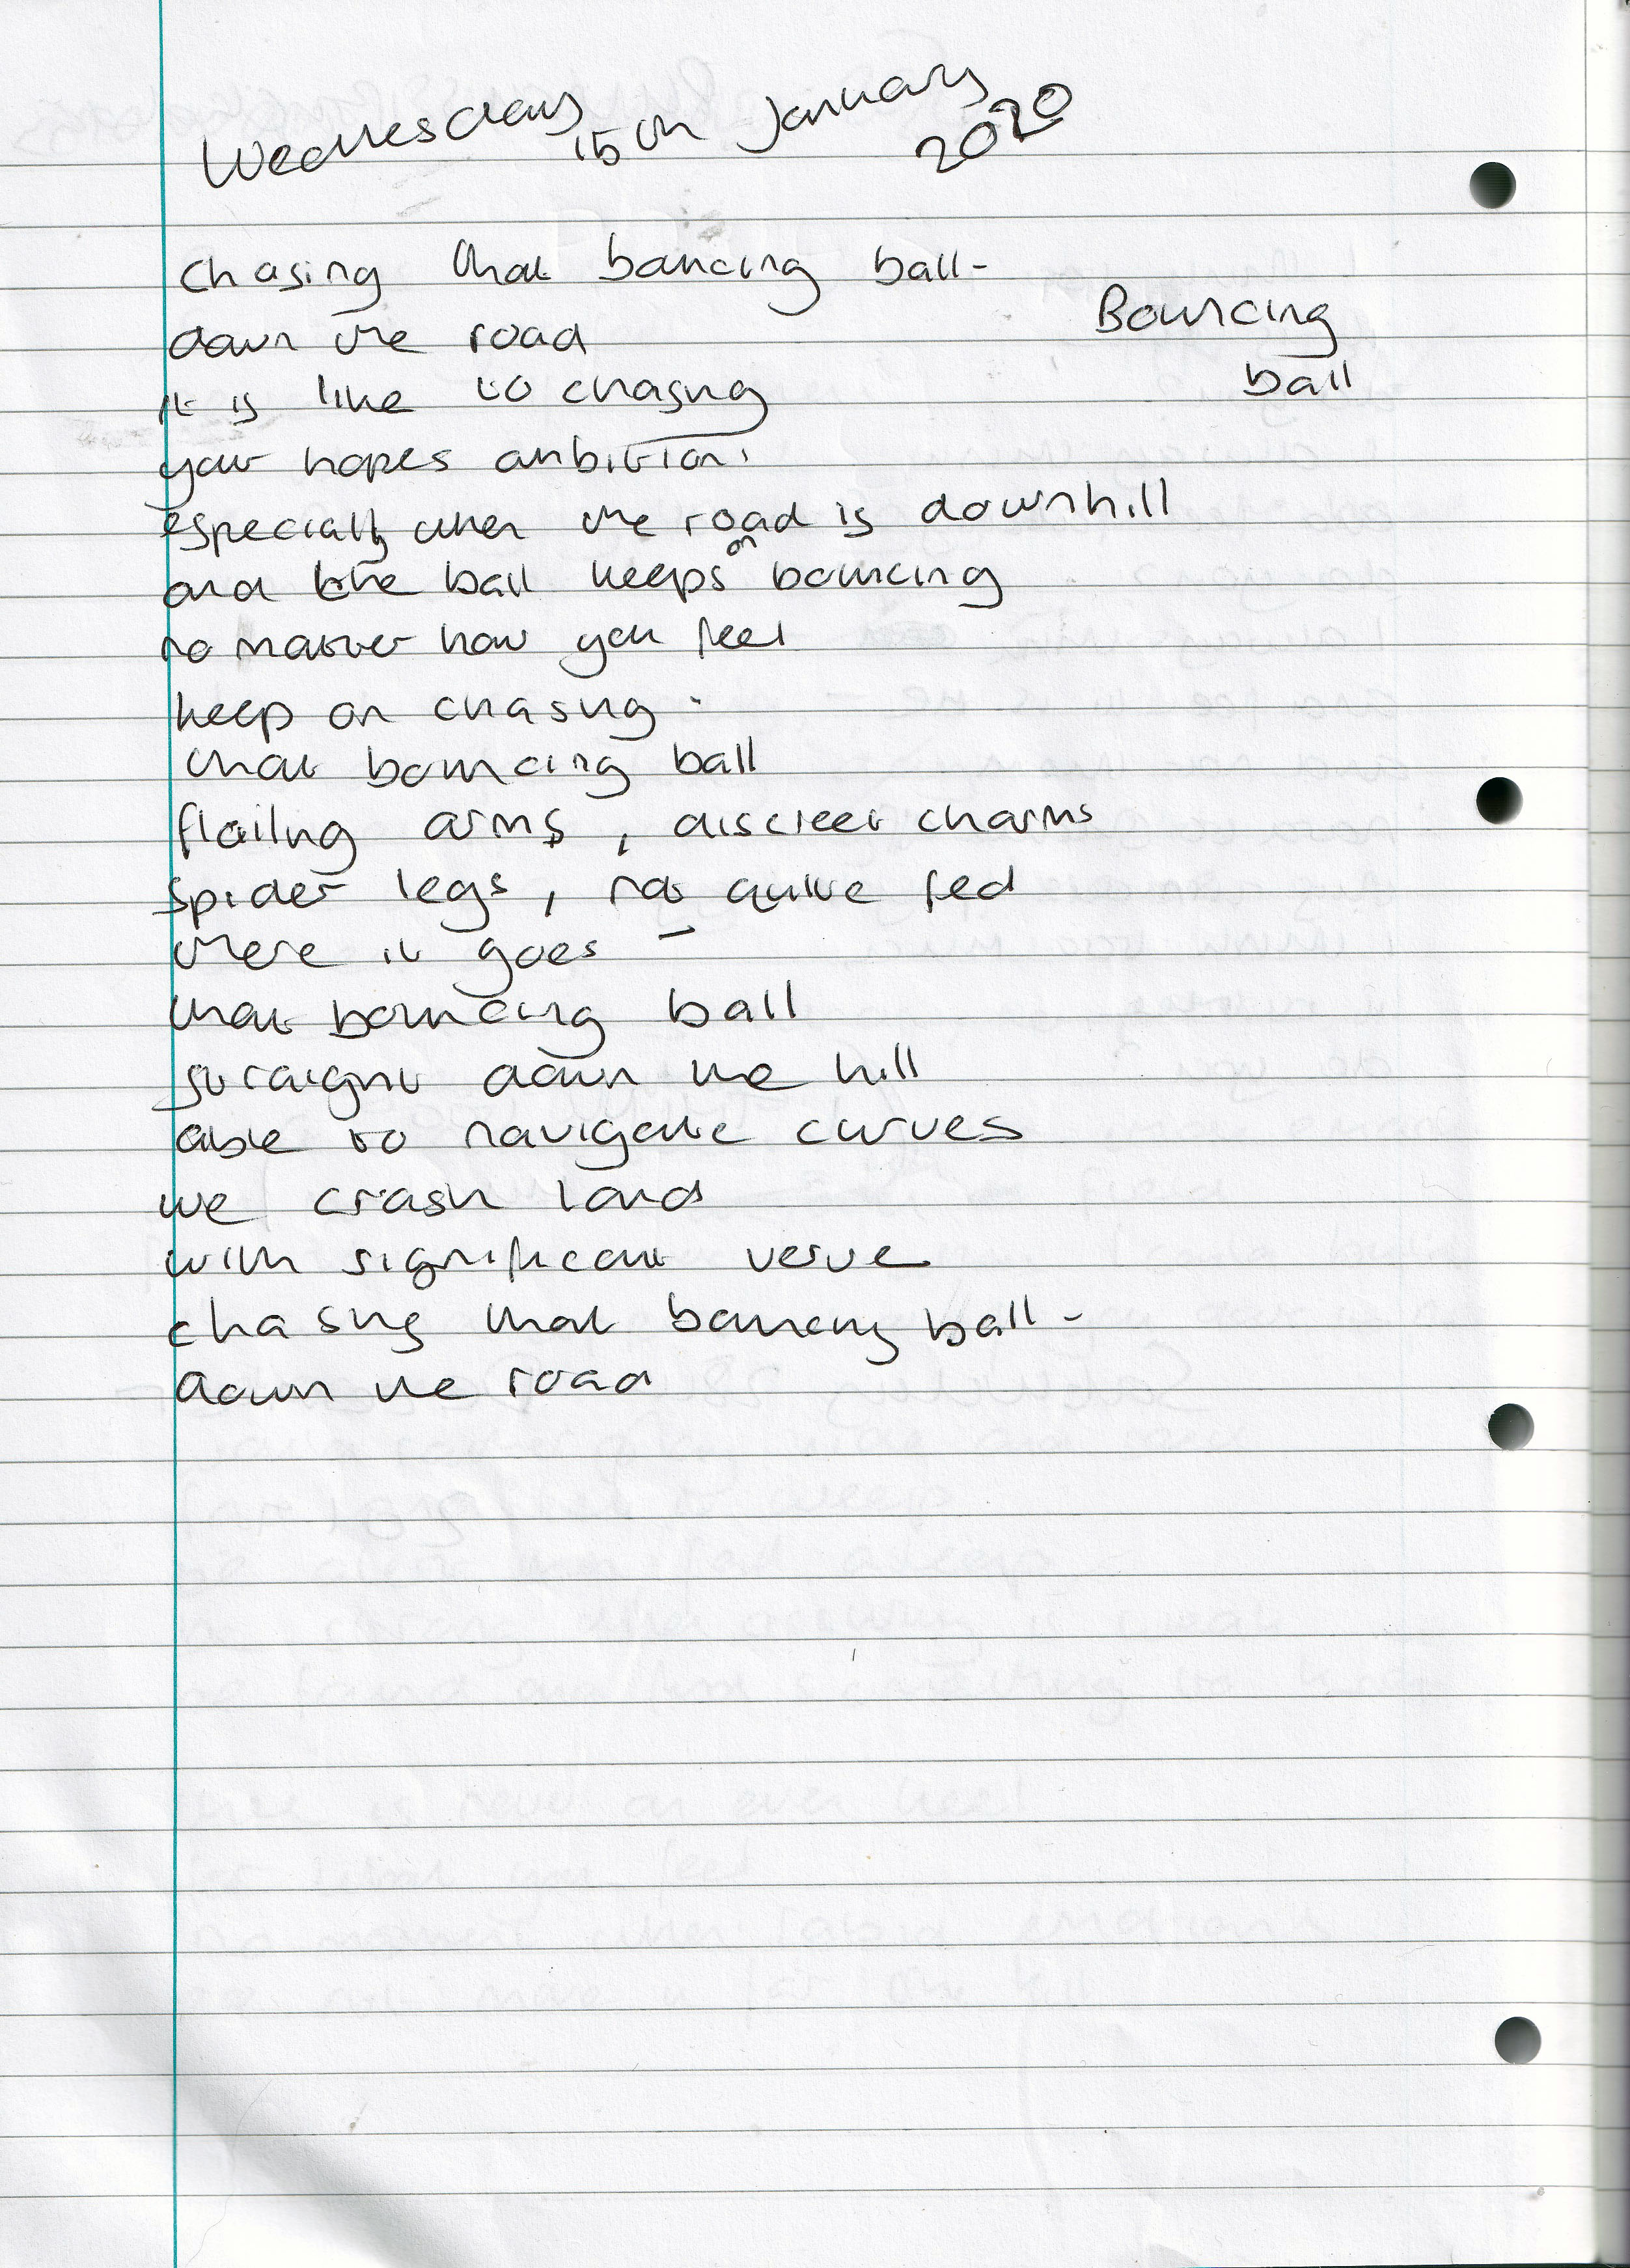 Wednesday 15th January 2020
Chasing that bouncing ball-
Bouncing
down the road
ball
it is like to chasing
your hopes ambition.
especially when the road is downhill
and the ball keeps on bouncing
no matter how you feel
keep on chasing -
that bouncing ball
flailing arms, discreet charms
spider legs, not quite fed
there it goes -
that bouncing ball
straight down the hill
able to navigate curves
we crash land
with significant verve
chasing that bouncing ball -
down the road